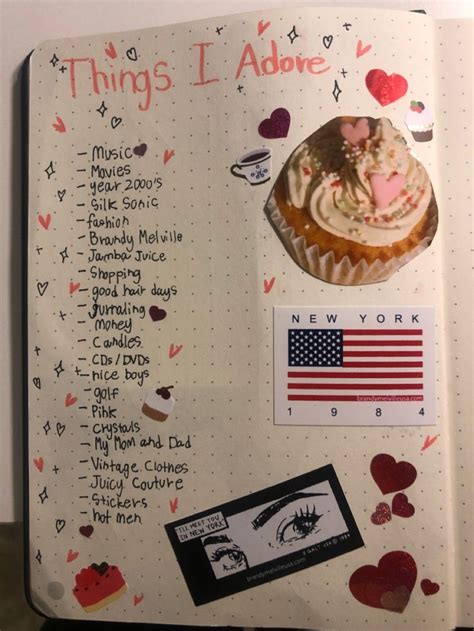 Things I Adore
- Music
- Movies
- year 2000's
- Silk Sonic
- fashion
- Brandy Melville
- Jamba Juice
- Shopping
- good hair days
- gurnaling
- Money
- Candles
- CDs/DVDs
- nice boys
- golf
- Pink
- Crystals
- My Mom and Dad
- Vintage Clothes
- Juicy Couture
- Stickers
- hot men
NEW YORK
brandymelvilleusa.com
1984
I'LL MEET YOU
IN NEW YORK
brandymelvilleusa.com